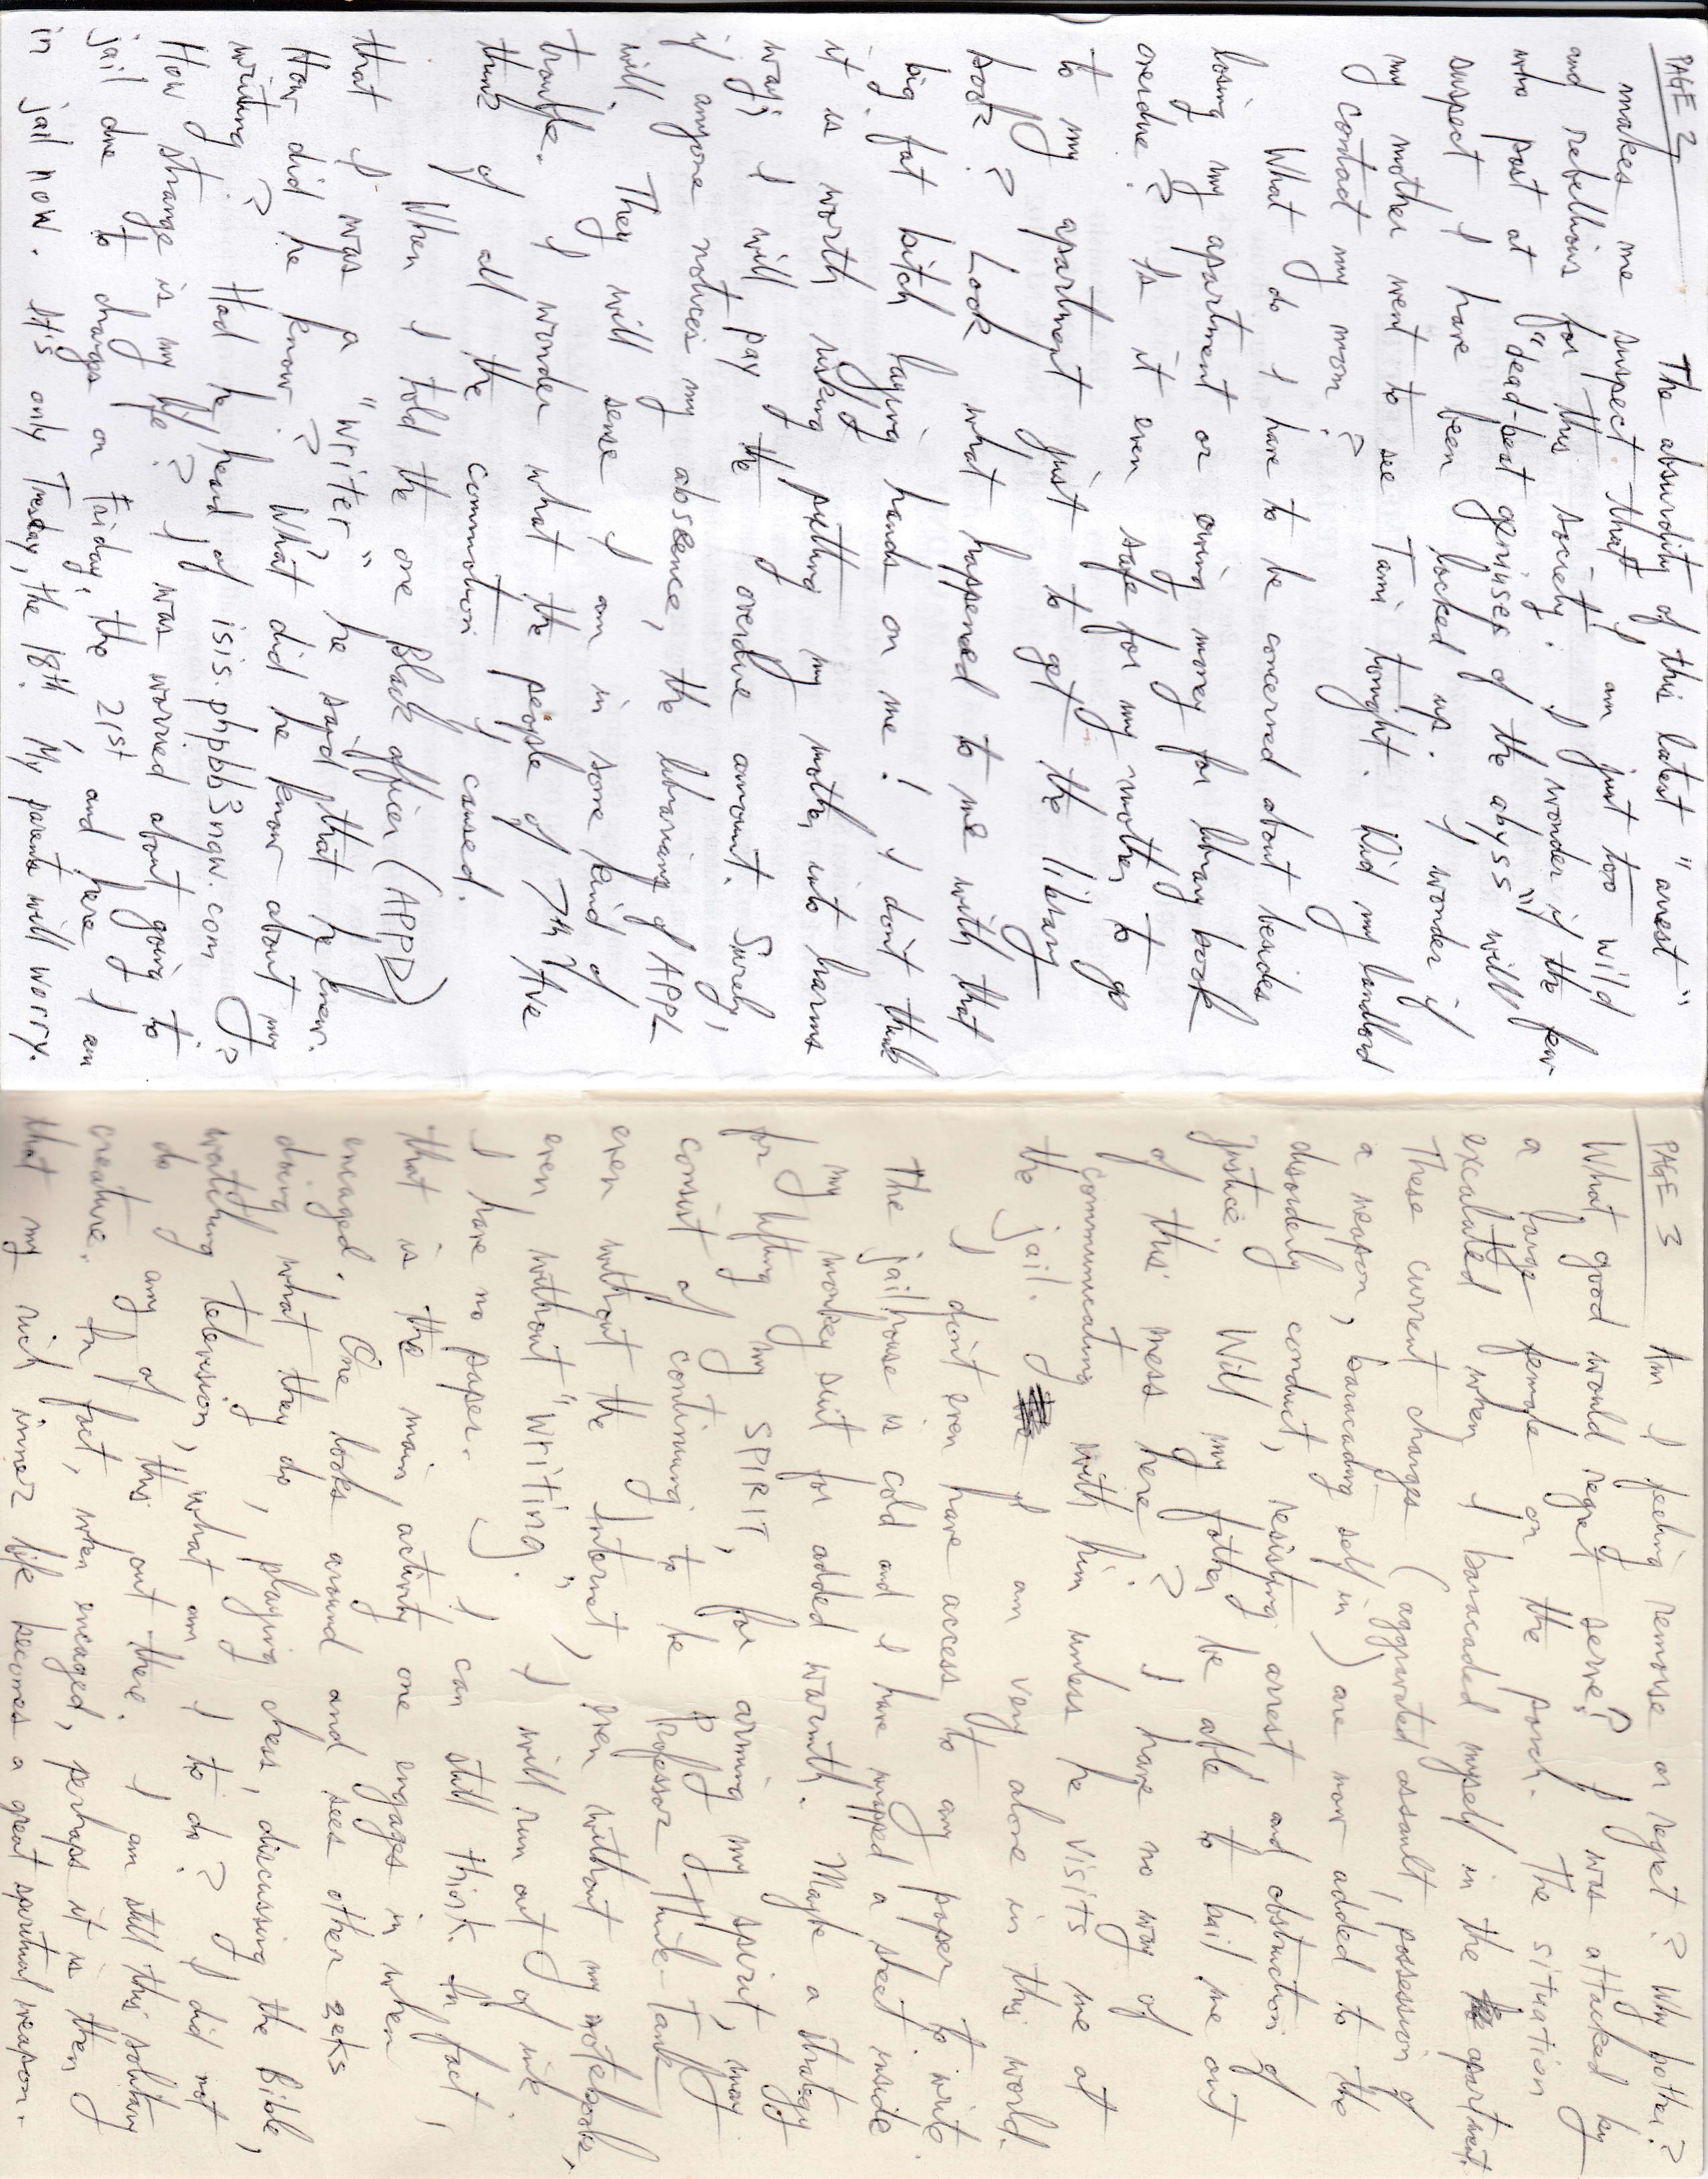 PAGE 2
The absurdity of this latest "arrest"
makes me suspect that I am just too wild
and rebellious for this society. I wonder if the few
who post at "dead-beat geniuses of the abyss" will
suspect I have been locked up. I wonder if
my mother went to see Tami tonight. Did my landlord
my contact my mom?
What do I have to be concerned about besides
losing my apartment or owing money for library book
overdue? Is it even safe for my mother to go
to my apartment just to get the library
book? Look what happened to me with that
big fat bitch laying hands on me! I don't think
it is worth risking putting my mother into harms
way; I will pay the overdue amount. Surely,
if anyone notices my absence, the librarians of APPL
will. They will sense I am in some kind of
trouble. I wonder what the people of 7th Ave
think of all the commotion I caused.
When I told the one Black officer (APPD)
that I was a "writer" he said that he knew.
How did he know? What did he know about my
writing? Had he heard of isis.phpbb3now.com?
How strange is my life? I was worried about going to
jail due to charges on Friday, the 21st and here I am
in jail now. It's only Tuesday, the 18th. My parents will worry.
PAGE 3
Am I feeling remorse or regret? Why bother?
What good would regret serve? I was attacked by
a large female on the porch. The situation
excalated when I baracaded myself in the apartment.
These current charges (aggravated assault, possession of
a weapon, baracading self in) are now added to the
disorderly conduct, resisting arrest and obstruction of
justice. Will my father be able to bail me out
of this mess here? I have no way of
communicating with him unless he visits me at
the jail. I am very alone in this world.
I don't even have access to any paper to write.
The jailhouse is cold and I have wrapped a sheet inside
my monkey suit for added warmth. Maybe a strategy
for lifting my SPIRIT, for arming my spirit, may
consist of continuing to be Professor Think-Tank
even without the Internet, even without my notebooks,
even without "writing", I will run out of ink.
I have no paper. I can still think. In fact,
that is the main activity one engages in when
encaged. One looks around and sees other zeks
doing what they do, playing chess, discussing the Bible,
watching television, what am I to do? I did not
do any of this out there. I am still this solitary
creature. In fact, when encaged, perhaps it is then
that my rich inner life becomes a great spiritual weapon.